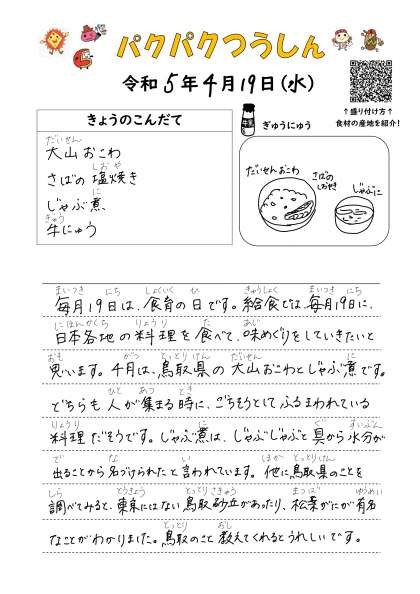 パクパクつうしん
令和5年4月19日(水)
↑盛り付け方↑
食材の産地を紹介!
きょうのこんだて
大山おこわ
さばの塩焼き
じゃぶ煮
牛にゅう
ぎゅうにゅう
だいせんおこわ
さばの
しおやき
じゃぶに
毎月19日は、食育の日です。給食では、毎月19日に、
日本各地の料理を食べて、味めぐりをしていきたいと
思います。4月は、鳥取県の大山おこわとじゃぶ煮です。
どちらも人が集まる時に、ごちそうとしてふるまわれている
料理だそうです。じゃぶ煮は、じゃぶじゃぶと具から水分が
出ることから名づけられたと言われています。他に鳥取県のことを
調べてみると、東京にはない鳥取砂丘があったり、松葉がにが有名
なことがわかりました。鳥取のこと教えてくれるとうれしいです。